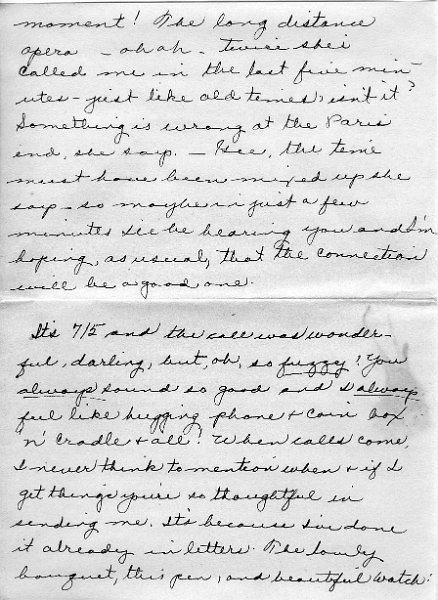 moment! The long distance
opera - oh oh - twice she's
called me in the last five min-
utes - just like old times, isn't it?
Something is wrong at the Paris
end, she says. - Gee, the time
must have been mixed up she
says - so maybe in just a few
minutes I'll be hearing you and I'm
hoping, as usual, that the connection
will be a good one.
It's 7/5 and the call was wonder-
ful, darling, but, oh, so fuzzy! You
always sound so good and I always
feel like hugging phone & coin box
n' cradle & all! When calls come,
I never think to mention when & if I
get things you're so thoughtful in
sending me. It's because I've done
it already in letters. The lovely
bouquet, this pen, and beautiful watch!